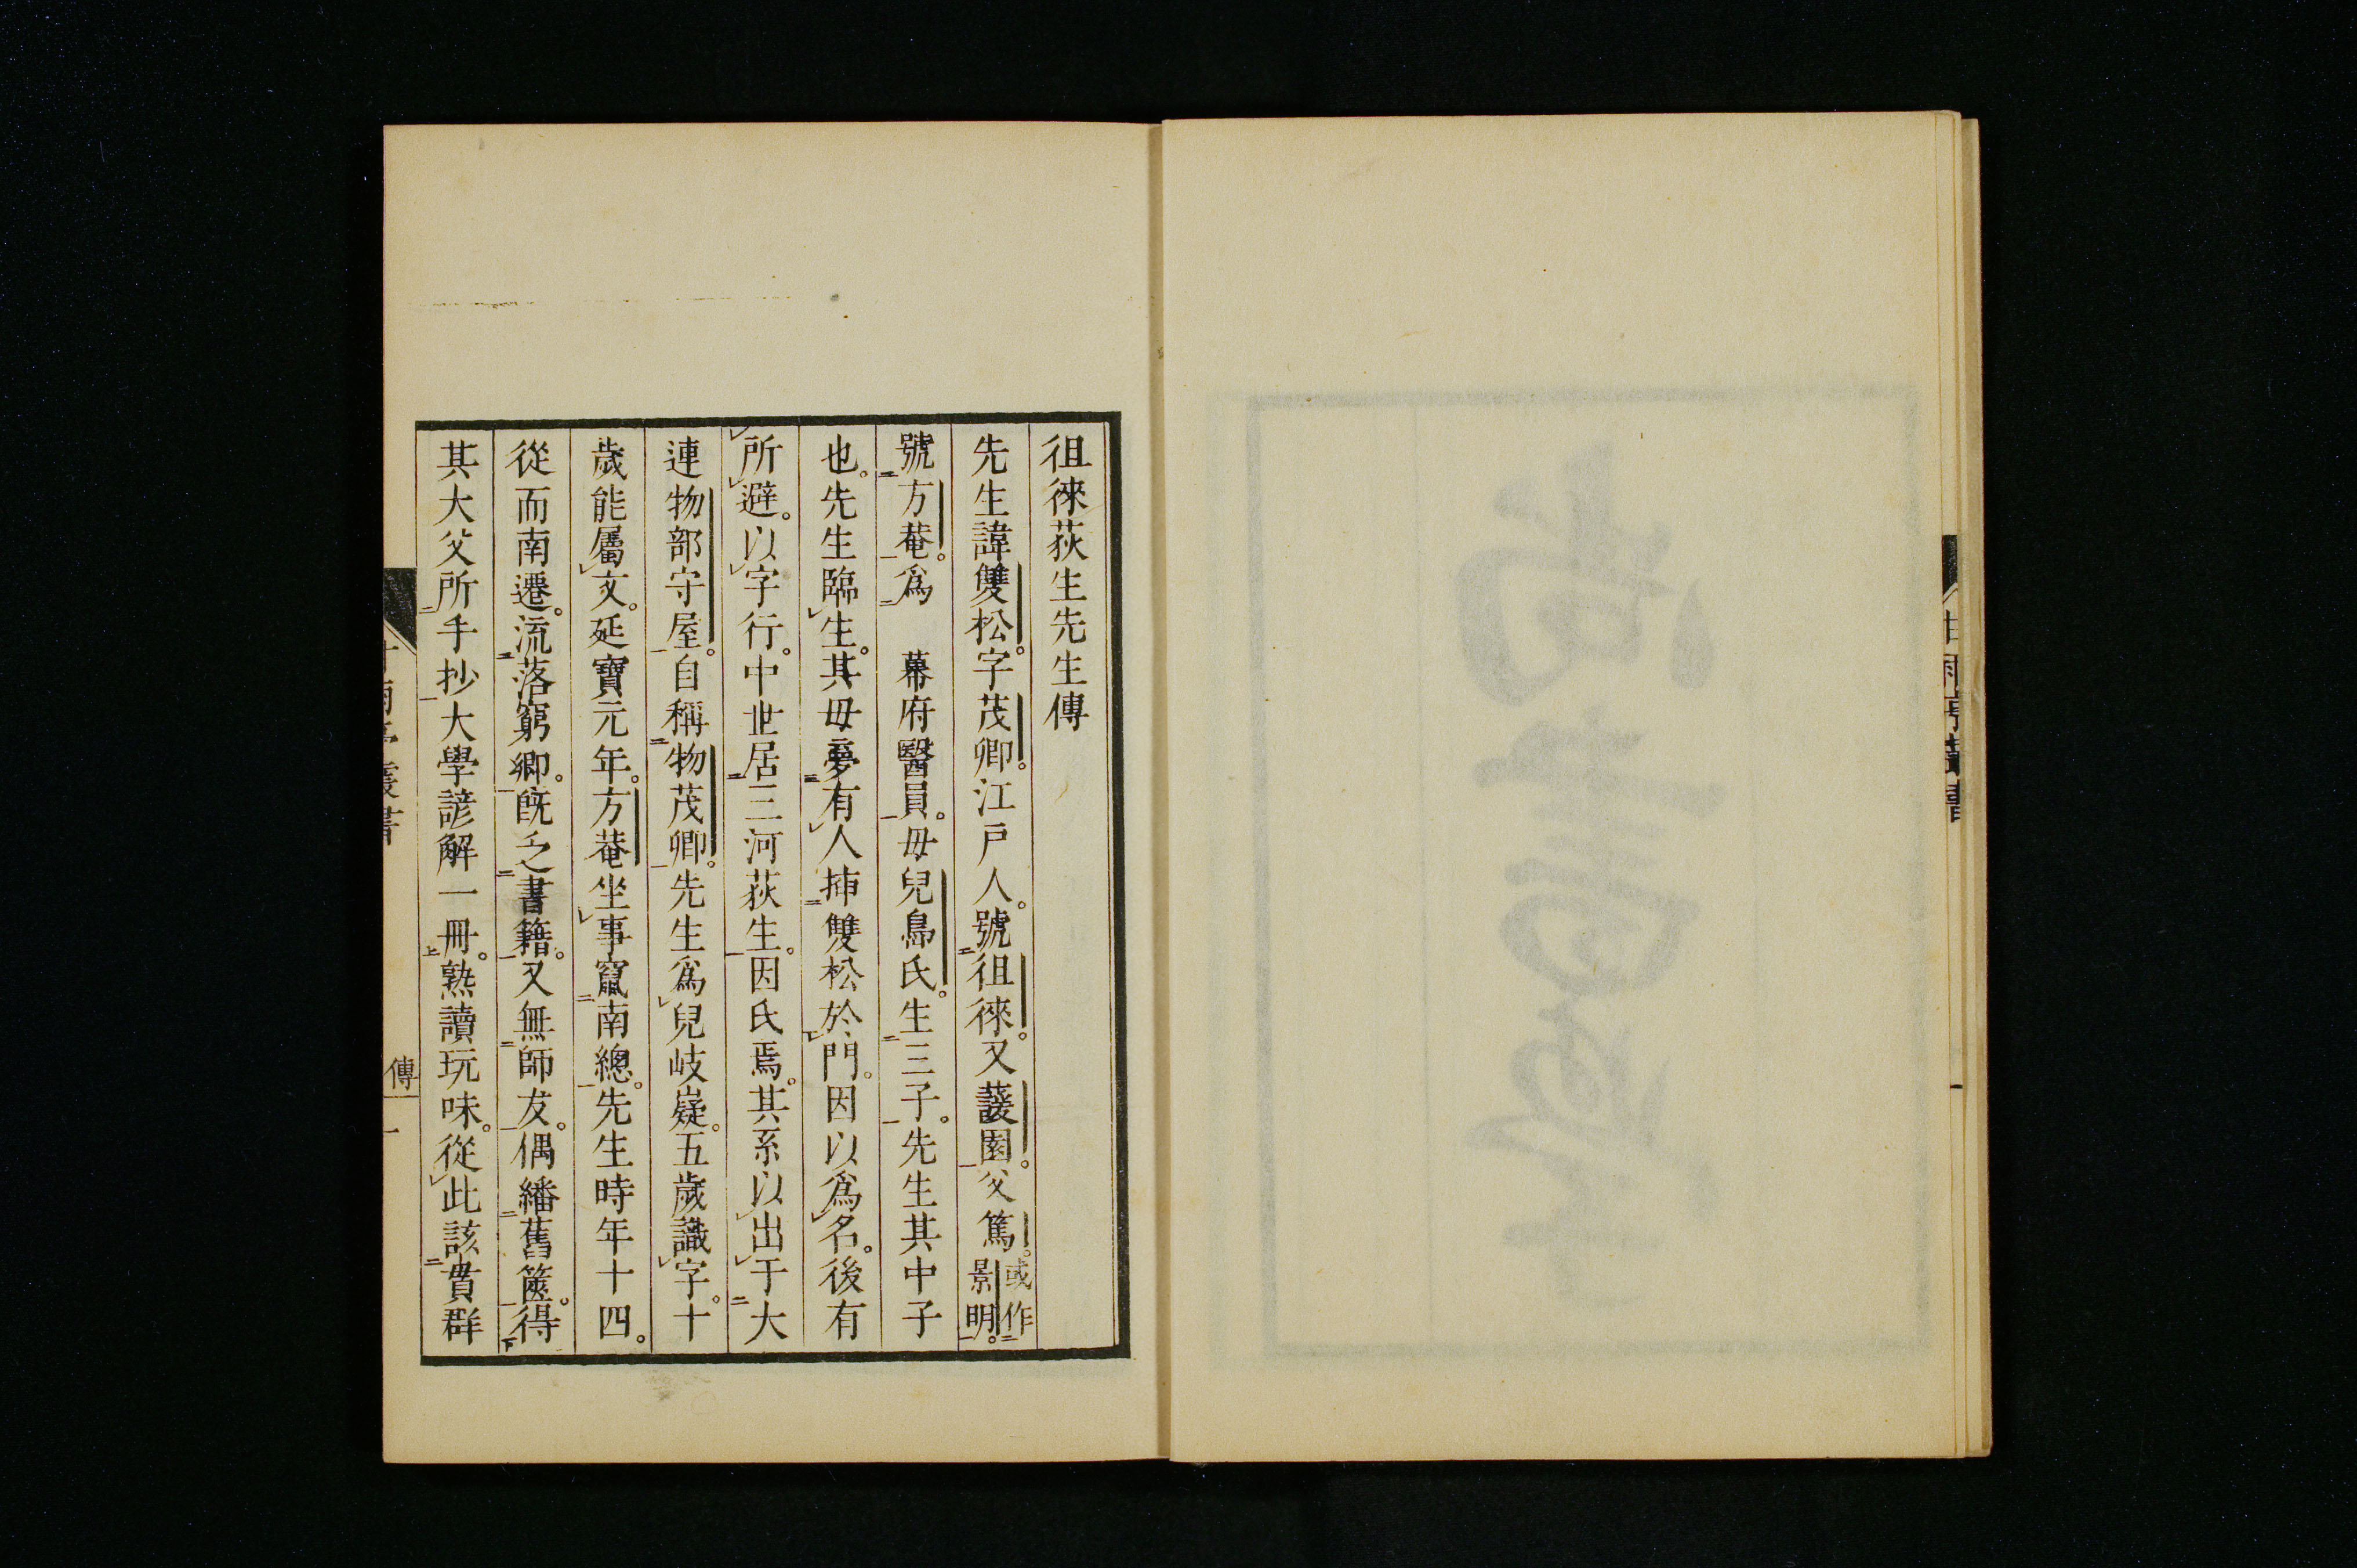 徂徠荻生先生傳
先生諱雙松。字茂卿。江戸人。號徂徠。又蘐園。父篤。或作景明。
號方菴。爲　幕府醫員。母兒島氏。生三子。先生其中子
也。先生臨生。其母夢有人挿雙松於門。因以爲名。後有
所避。以字行。中世居三河荻生。因氏焉。其系以出于大
連物部守屋。自稱物茂卿。先生爲兒岐嶷。五歳識字。十
歳能屬文。延寶元年。方菴坐事竄南總。先生時年十四。
從而南遷。流落窮鄉。既乏書籍。又無師友。偶繙舊篋。得
其大父所手抄大學諺解一冊。熟讀玩味。從此該貫群
甘雨亭叢書
傳
一
甘雨亭叢書